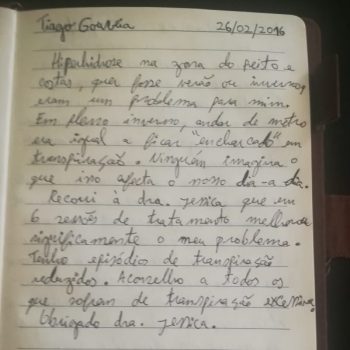 Tiago Gouveia 26/02/2016
Hiperhidrose na zona do peito e
costas, quer fosse verão ou inverno,
eram um problema para mim.
Em pleno inverno, andar de metro
era igual a ficar "encharcado" em
transpiração. Ninguém imagina o
que isso afecta o nosso dia-a-dia.
Recorri a dra. Jessica que em
6 sessões de tratamento melhorou
significamente o meu problema.
Tenho episódio de transpiração
reduzidos. Aconselho a todos os
que sofram de transpiração excessiva.
Obrigado dra. Jessica.